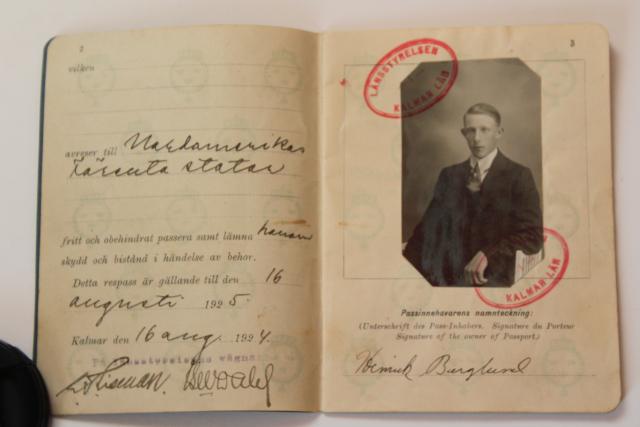 2
vilken
avreser till Nordamerikas
Förenta stater
fritt och obehindrat passera samt lämna honom
skydd och bistånd i händelse av behov.
Detta respass är gällande till den 16
augusti 1925.
Kalmar den 16 aug. 1924.
På Länsstyrelsens vägnar
3
LÄNSSTYRELSEN
KALMAR LÄN
KALMAR LÄN
Passinnehavarens namnteckning:
(Unterschrift des Pass-Inhabers. Signature du Porteur
Signature of the owner of Passport.)
Henrik Berglund